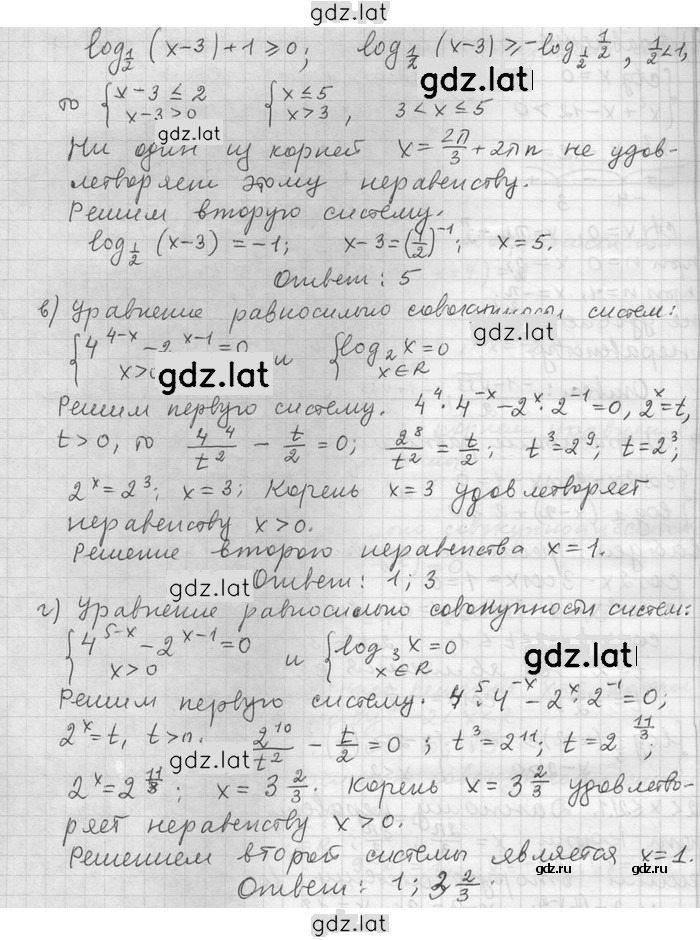 gdz.lat
log_{1/2} (x-3)+1 ≥ 0; log_{1/2} (x-3) ≥ -log_{1/2} 1/2, 1/2 < 1,
gdz.lat
то { x-3 ≤ 2 { x ≤ 5
x-3 > 0 x > 3, 3 < x ≤ 5
gdz.lat
Ни один из корней x = 2π/3 + 2πn не удов-
летворяет этому неравенству.
Решим вторую систему.
log_{1/2} (x-3) = -1; x-3 = (1/2)^{-1}; x = 5.
gdz.lat
Ответ: 5
в) Уравнение равносильно совокупности систем:
{ 4^{4-x} - 2^{x-1} = 0 и { log_2 x = 0
x > 0 x ∈ R
gdz.lat
gdz.lat
Решим первую систему. 4^4 · 4^{-x} - 2^x · 2^{-1} = 0, 2^x = t,
t > 0, то 4^4/t^2 - t/2 = 0; 2^8/t^2 = t/2; t^3 = 2^9; t = 2^3;
2^x = 2^3; x = 3; Корень x = 3 удовлетворяет
неравенству x > 0.
Решение второго неравенства x = 1.
gdz.lat
Ответ: 1; 3
г) Уравнение равносильно совокупности систем:
{ 4^{5-x} - 2^{x-1} = 0 и { log_3 x = 0
x > 0 x ∈ R
gdz.lat
Решим первую систему. 4^5 · 4^{-x} - 2^x · 2^{-1} = 0;
2^x = t, t > 0. 2^{10}/t^2 - t/2 = 0; t^3 = 2^{11}; t = 2^{11/3};
gdz.lat
2^x = 2^{11/3}; x = 3 2/3. Корень x = 3 2/3 удовлетво-
ряет неравенству x > 0.
Решением второй системы является x = 1.
www.gdz.ru
Ответ: 1; 3 2/3.
gdz.lat